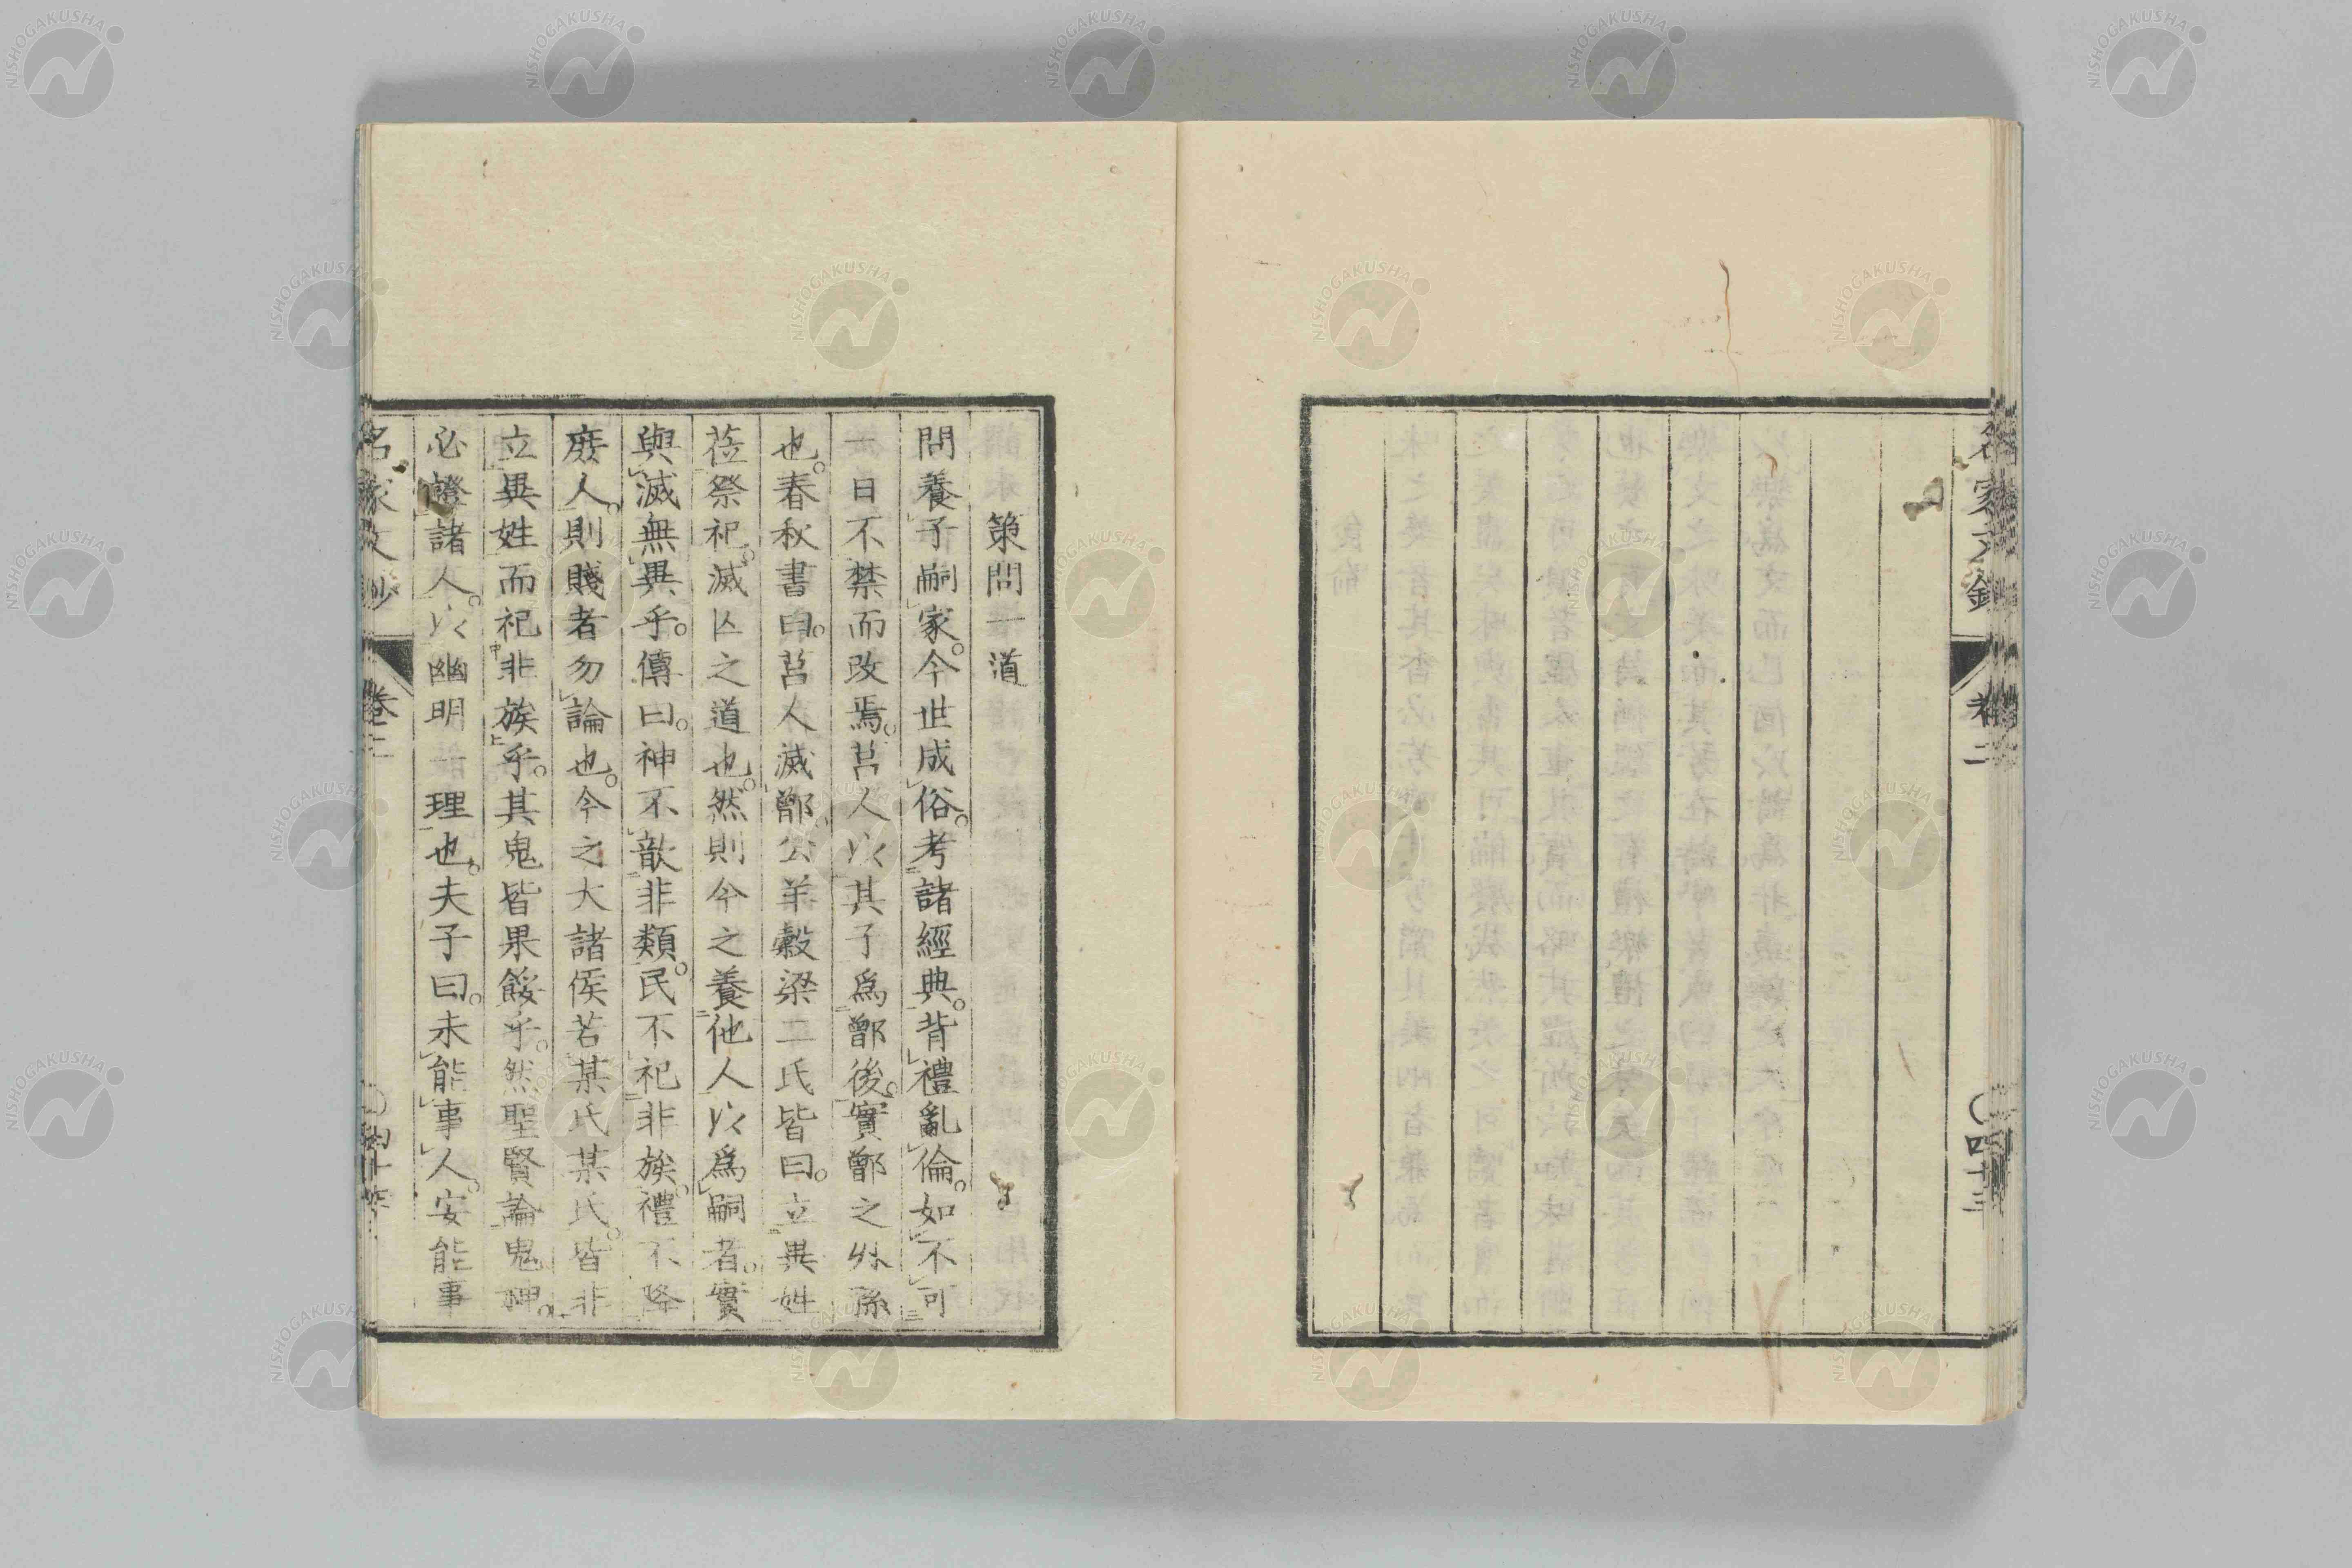 名家文鈔
卷二
四十三
策問一道
問養子嗣家。今世成俗。考諸經典。背禮亂倫。如不可
一日不禁而改焉。莒人以其子為鄫後。實鄫之外孫
也。春秋書曰。莒人滅鄫。公羊穀梁二氏皆曰。立異姓
莅祭祀。滅亾之道也。然則今之養他人以為嗣者。實
與滅無異乎。傳曰。神不歆非類。民不祀非族。禮不降
庶人。則賤者勿論也。今之大諸侯若某氏某氏。皆非
立異姓而祀非族乎。其鬼皆果餒乎。然聖賢論鬼神。
必證諸人。以幽明一理也。夫子曰。未能事人。安能事
名家文鈔
卷二
NISHOGAKUSHA